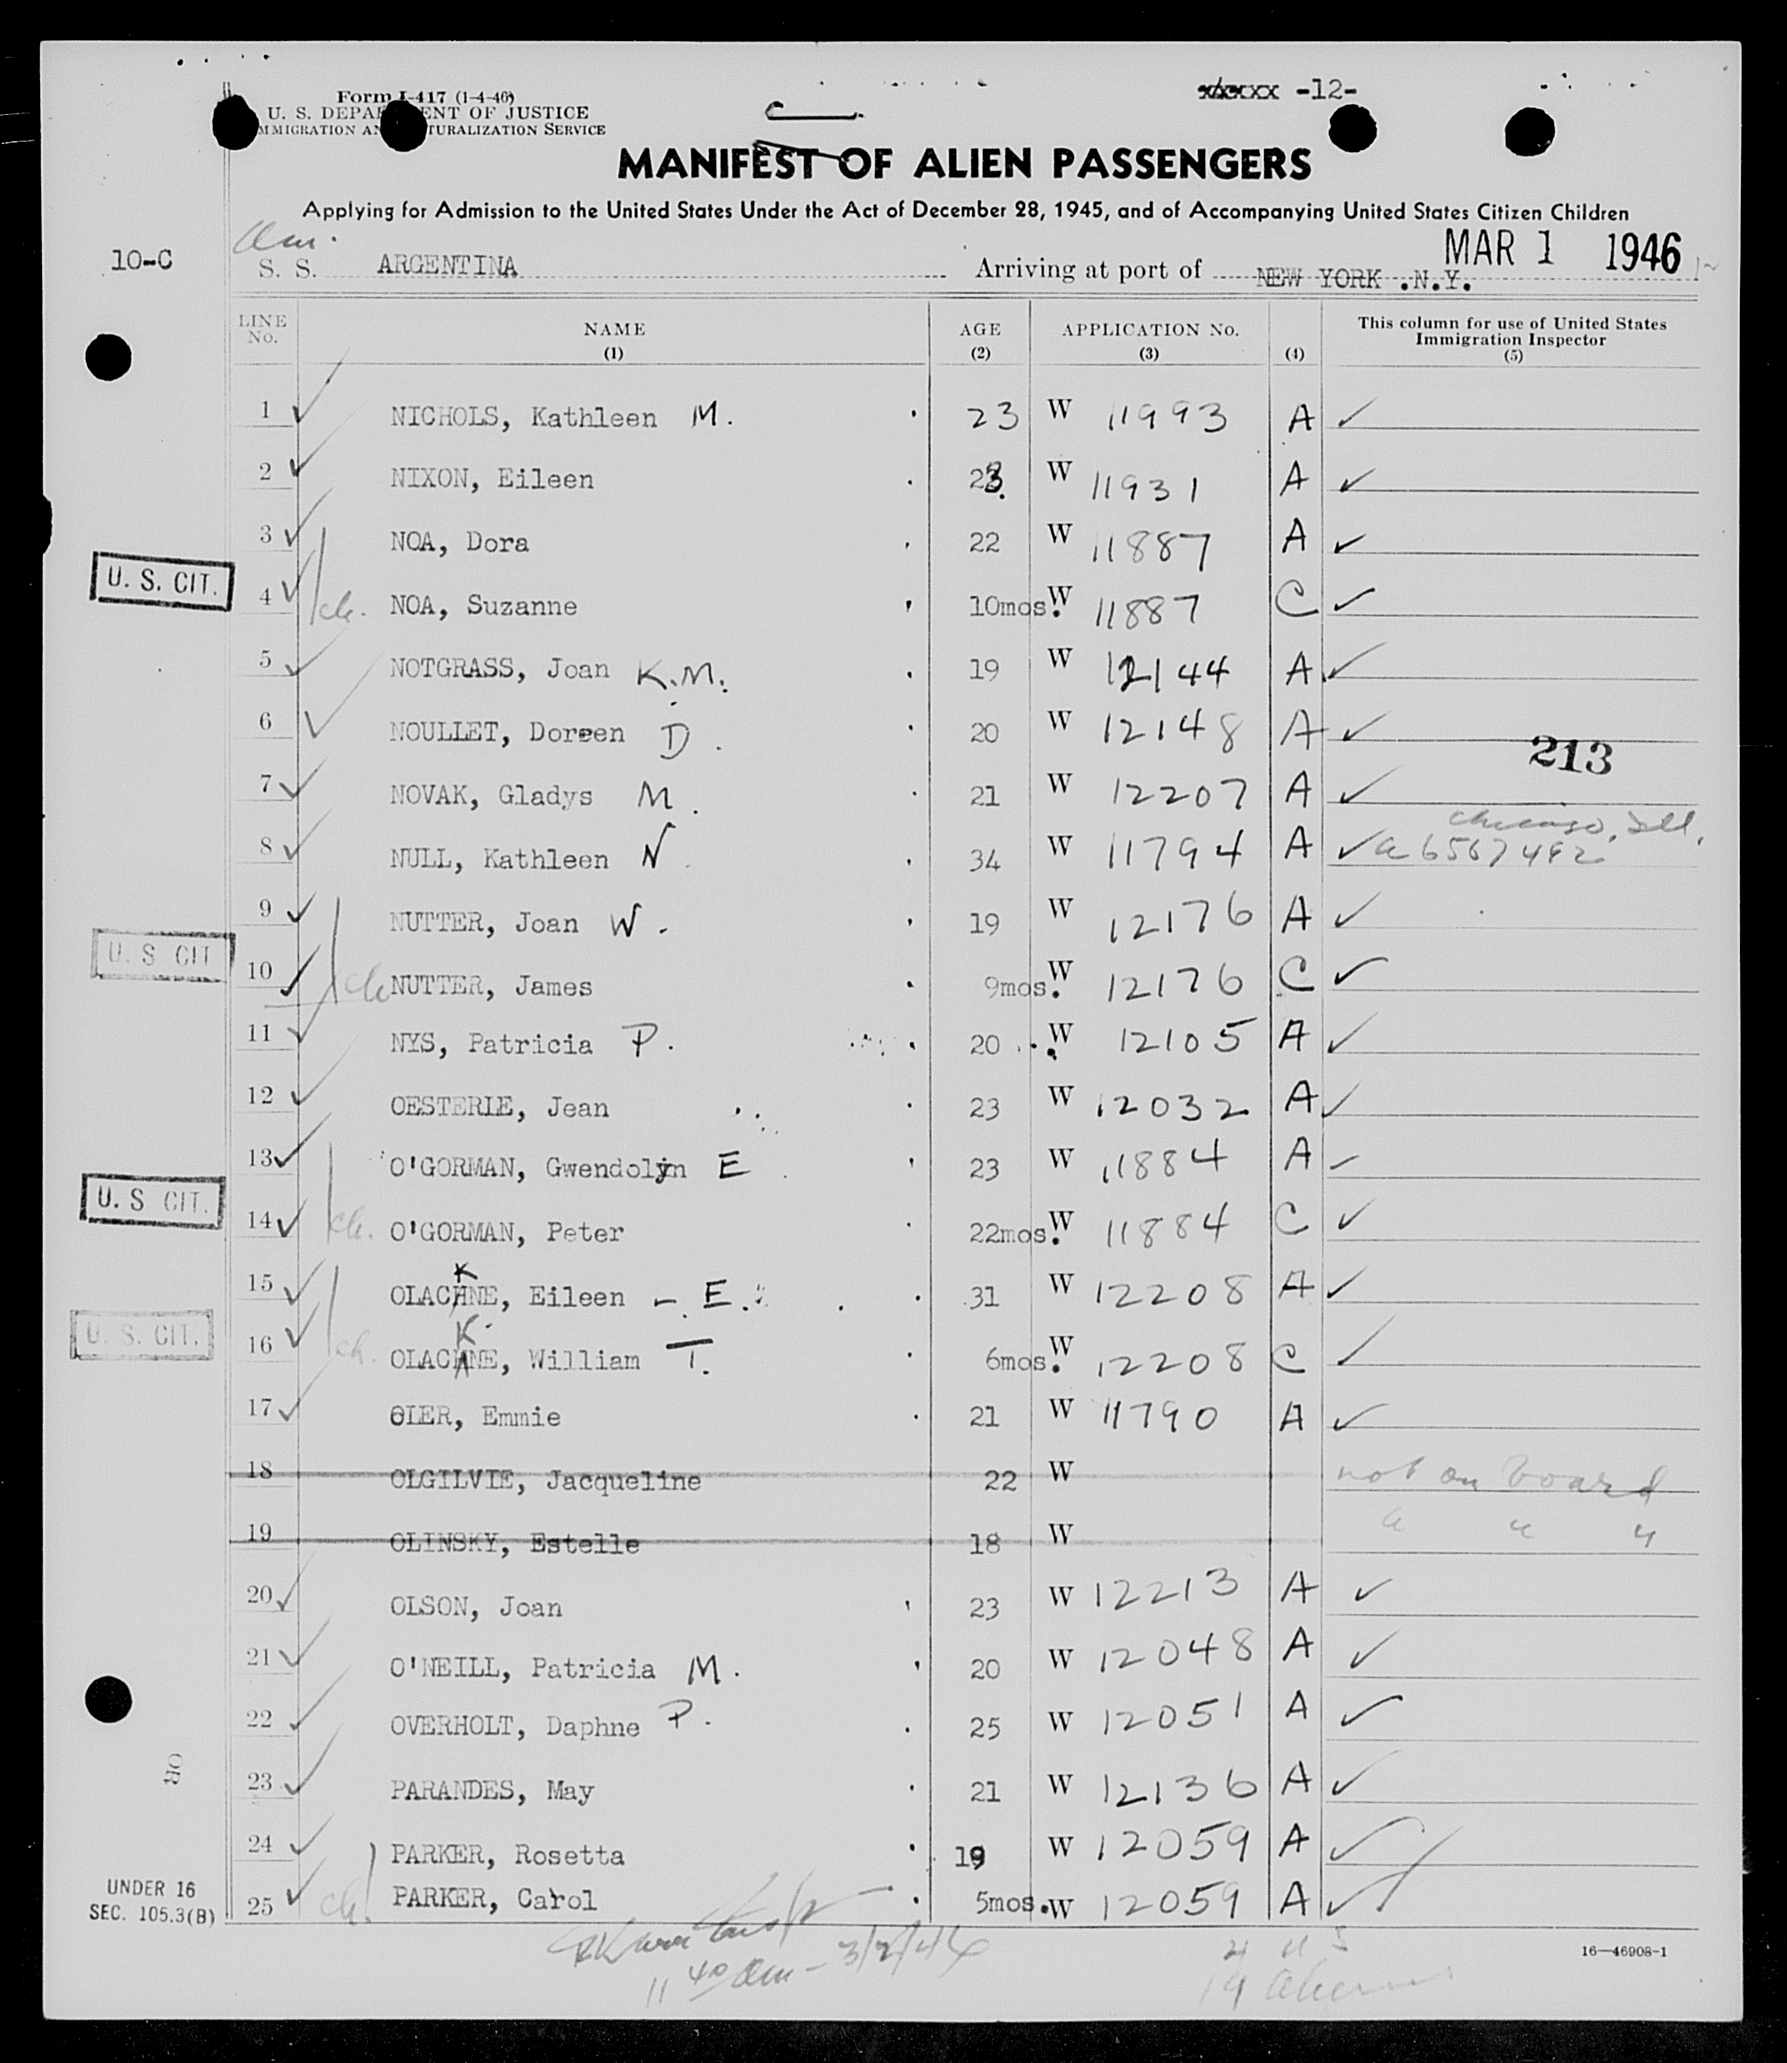 -12-
Form I-417 (1-4-46)
U. S. DEPARTMENT OF JUSTICE
IMMIGRATION AND NATURALIZATION SERVICE
MANIFEST OF ALIEN PASSENGERS
Applying for Admission to the United States Under the Act of December 28, 1945, and of Accompanying United States Citizen Children
10-C
S. S. ARGENTINA Arriving at port of NEW YORK .N.Y. MAR 1 1946
LINE No. NAME (1) AGE (2) APPLICATION No. (3) (4) This column for use of United States Immigration Inspector (5)
1 ✓ NICHOLS, Kathleen M. 23 W 11993 A ✓
2 ✓ NIXON, Eileen 23. W 11931 A ✓
3 ✓ NOA, Dora 22 W 11887 A ✓
U. S. CIT. 4 ✓ ch. NOA, Suzanne 10mos. W 11887 C ✓
5 ✓ NOTGRASS, Joan K.M. 19 W 12144 A ✓
6 ✓ NOULLET, Doreen D. 20 W 12148 A ✓
213
7 ✓ NOVAK, Gladys M. 21 W 12207 A ✓
Chicago, Ill.
8 ✓ NULL, Kathleen N. 34 W 11794 A ✓
9 ✓ NUTTER, Joan W. 19 W 12176 A ✓
U. S CIT 10 ✓ ch NUTTER, James 9mos. W 12176 C ✓
11 ✓ NYS, Patricia P. 20 W 12105 A ✓
12 ✓ OESTERIE, Jean 23 W 12032 A ✓
13 ✓ O'GORMAN, Gwendolyn E 23 W 11884 A ✓
U. S CIT. 14 ✓ ch. O'GORMAN, Peter 22mos. W 11884 C ✓
K
15 ✓ OLACHNE, Eileen - E. 31 W 12208 A ✓
K
U. S. CIT. 16 ✓ ch. OLACHNE, William T. 6mos. W 12208 C ✓
17 ✓ OLER, Emmie 21 W 11790 A ✓
18 OLGILVIE, Jacqueline 22 W not on board
19 OLINSKY, Estelle 18 W " " "
20 ✓ OLSON, Joan 23 W 12213 A ✓
21 ✓ O'NEILL, Patricia M. 20 W 12048 A ✓
22 ✓ OVERHOLT, Daphne P. 25 W 12051 A ✓
23 ✓ PARANDES, May 21 W 12136 A ✓
24 ✓ PARKER, Rosetta 19 W 12059 A ✓
UNDER 16
SEC. 105.3(B)
25 ✓ ch. PARKER, Carol 5mos. W 12059 A ✓
11 40 am - 3/2/46
4 U S
19 Aliens
16—46908-1